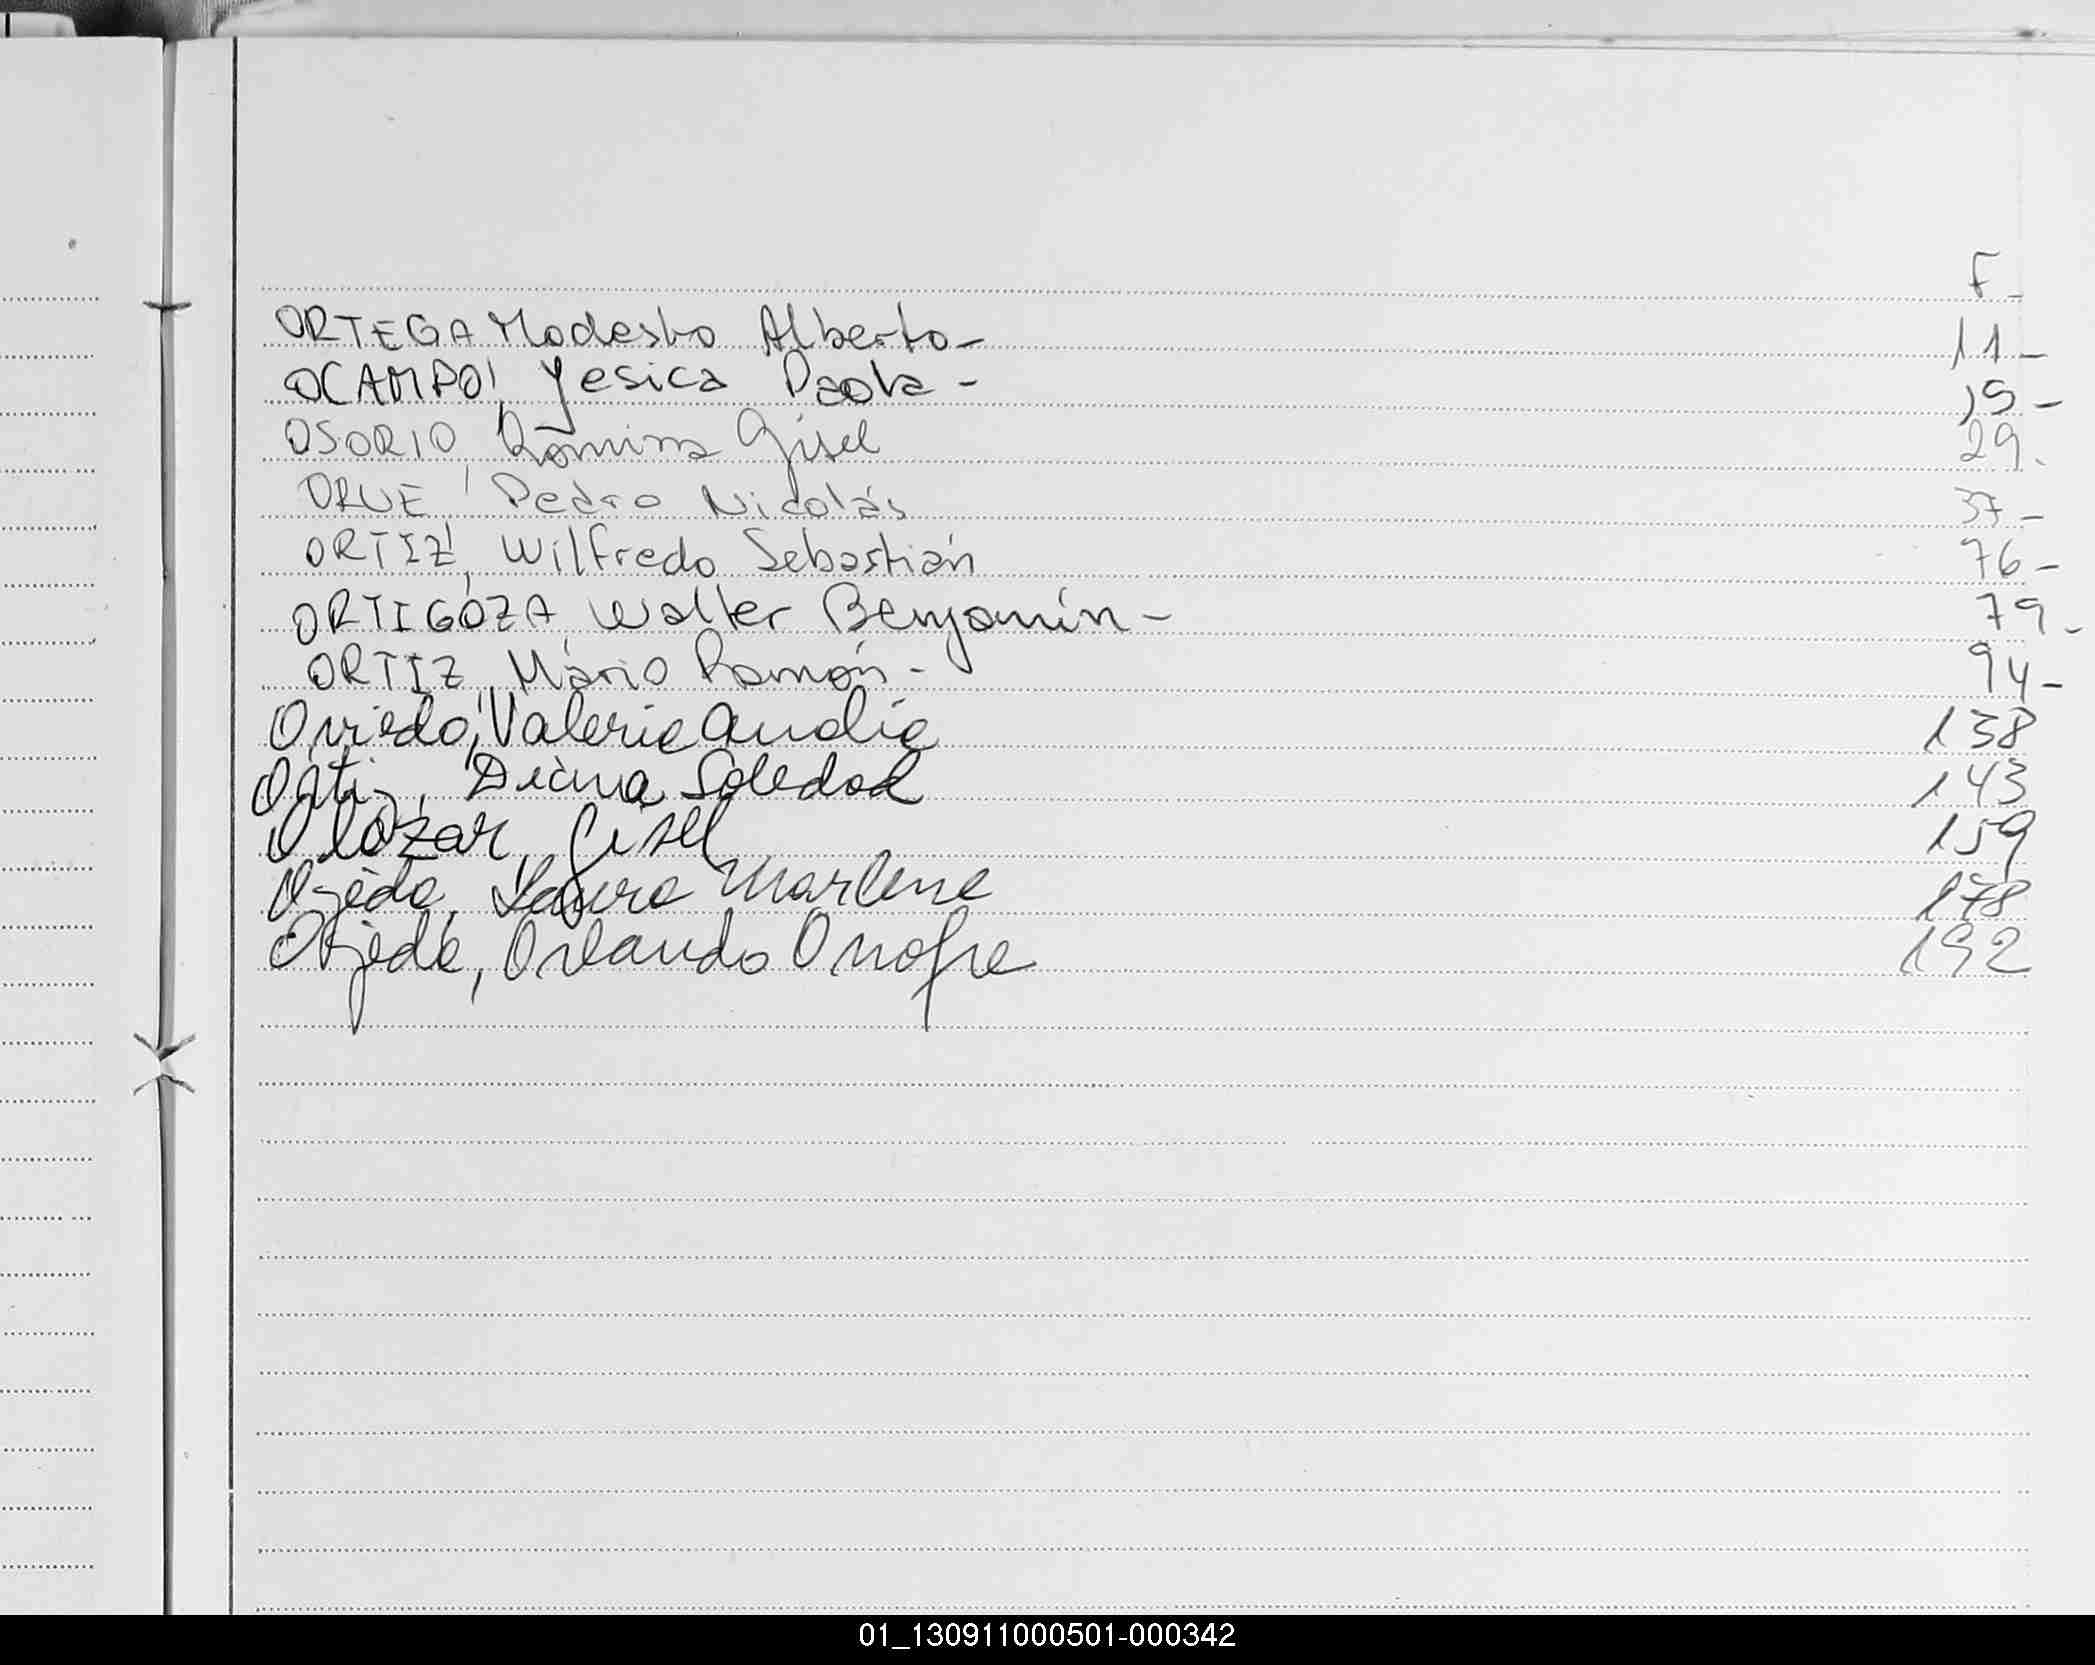 F-
ORTEGA Modesto Alberto- 11-
OCAMPO, Yesica Paola - 19-
OSORIO, Romina Gisel 29.
ORUE, Pedro Nicolás 37-
ORTIZ, Wilfredo Sebastián 76-
ORTIGOZA, Walter Benjamín- 79-
ORTIZ, Mario Ramón- 94-
Oviedo, Valeria Analia 138
Ortiz, Diana Soledad 143
Olazar, Gisel 159
Ojeda, Laura Marlene 178
Ojeda, Orlando Onofre 192
01_130911000501-000342